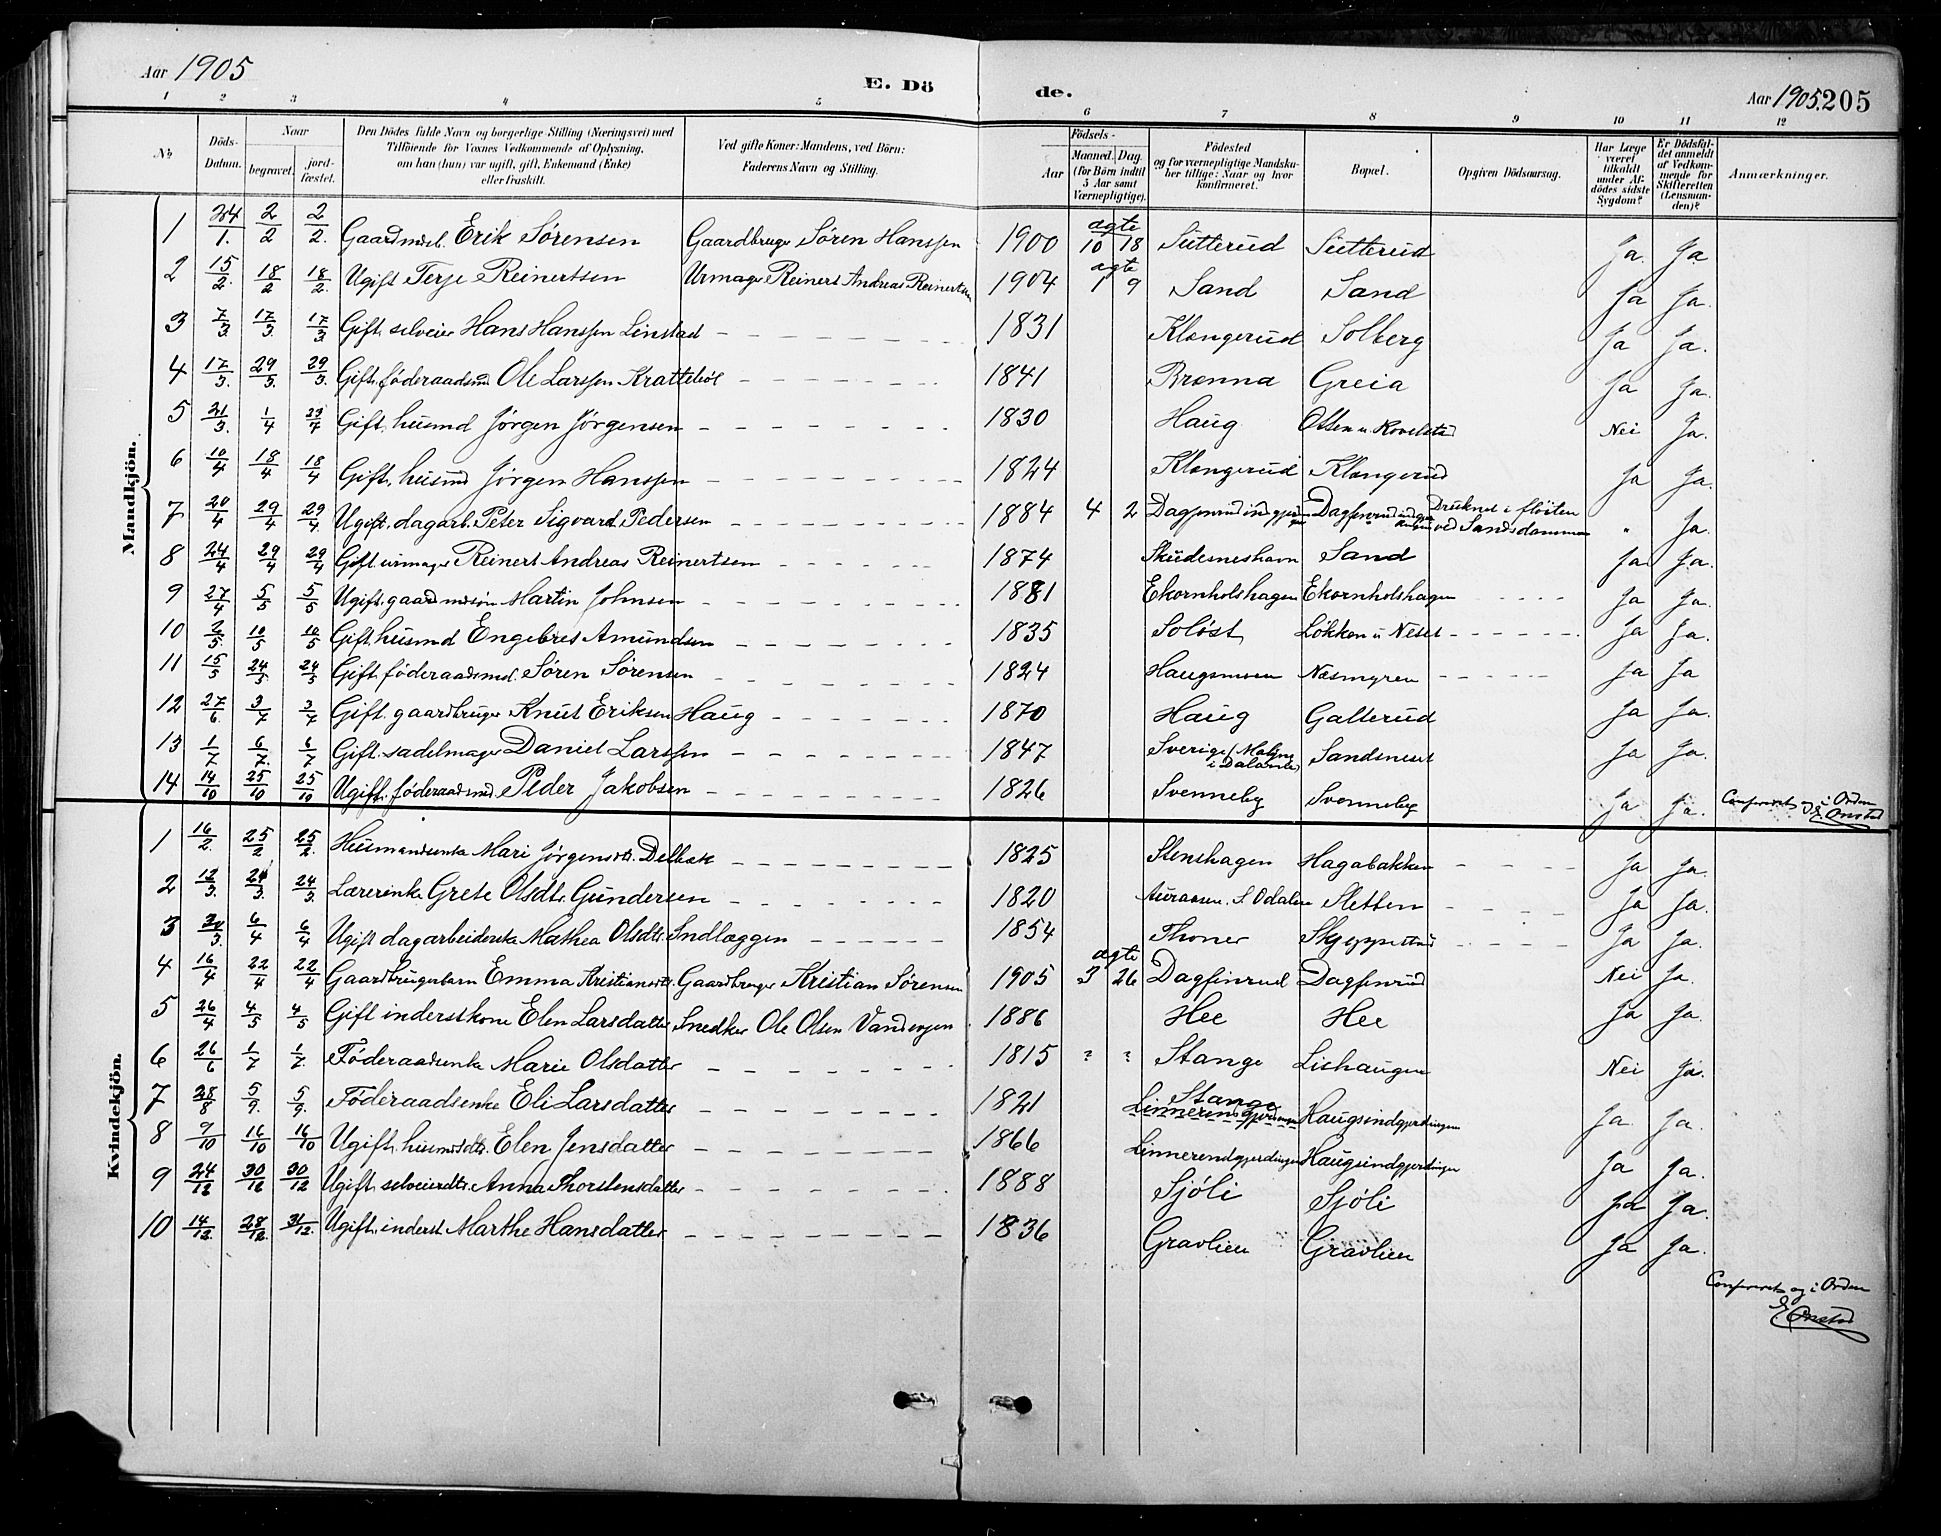 Aar 1905 E. Döde. Aar 1905. 205
1 2 3 4 5 6 7 8 9 10 11 12
No. Döds-Datum. Naar begravet. jordfæstet. Den Dödes fulde Navn og borgerlige Stilling (Næringsvei) med Tilföiende for Voxnes Vedkommende af Oplysning, om han (hun) var ugift, gift, Enkemand (Enke) eller fraskilt. Ved gifte Koner: Mandens, ved Börn: Faderens Navn og Stilling. Födsels- Aar Maaned. Dag. (for Börn indtil 5 Aar samt Værnepligtige). Födested og for værnepligtige Mandskaber tillige: Naar og hvor konfirmeret. Bopæl. Opgiven Dödsaarsag. Har Læge været tilkaldt under Afdödes sidste Sygdom? Er Dödsfaldet anmeldt af Vedkommende for Skifteretten (Lensmanden)? Anmærkninger.
Mandkjön.
1 24/1. 2/2 2/2. Gaardmdsb. Erik Sørensen Gaardbruger Søren Hanssen 1900 ægte 10 18 Sutterud Sutterud Ja. Ja
2 15/2. 18/2 18/2. Ugift Terje Reinertsen Urmager Reinert Andreas Reinertsen 1904 ægte 1 9 Sand Sand Ja Ja.
3 7/3 17/3. 17/3 Gift. selveier Hans Hanssen Linstad 1831 Klongerud Solberg Ja Ja.
4 17/3. 29/3 29/3. Gift. föderaadsmd Ole Larssen Krattebøl 1841 Brenna Greia Ja Ja.
5 21/3. 1/4 23/4 Gift. husmd Jørgen Jørgensen 1830 Haug Ottsen u. Kovelstad Nei Ja.
6 10/4 18/4 18/4 Gift. husmd Jørgen Hanssen 1824 Klongerud Klongerud Ja Ja.
7 20/4 29/4 29/4 Ugift. dagarb. Peter Sigvard Pedersen 1884 4 2 Dagfinrud indgjerdingen Dagfinrud indgjerdingen Druknet i fløiten ved Sandsdammen " Ja.
8 24/4 29/4 29/4 Gift urmager Reinert Andreas Reinertsen 1874 Skudesneshavn Sand Ja Ja.
9 27/4 5/5 5/5 Ugift. gaardmdsøn Martin Johnsen 1881 Ekornholshagen Ekornholshagen Ja Ja.
10 2/5. 10/5 10/5 Gift husmd Engebret Amundsen 1835 Soløst Løkken u Neset Ja Ja.
11 15/5 24/5. 24/5 Gift. föderaadsmd. Søren Sørensen 1824 Haugsmoen Næsmyren Ja Ja
12 27/6 3/7 3/7 Gift. gaardbruger Knut Eriksen Haug 1870 Haug Galterud Ja Ja.
13 1/7 6/7. 6/7 Gift. sadelmager Daniel Larssen 1847 Sverige (Malung i Dalarne) Sandsneset Ja Ja.
14 14/10 25/10 25/10 Ugift. föderaadsmd. Peder Jakobsen 1826 Svenneby Svenneby Ja Ja. Confereret og i Orden E Onstad
Kvindekjön.
1 16/2. 25/2 25/2. Husmandsenke Mari Jørgensdtr. Delbæk 1825 Stenshagen Hagabakken Ja Ja.
2 12/3. 24/3. 24/3. Lærerenke Grete Olsdtr. Gundersen 1820 Auraasen. S. Odalen Sletten Ja Ja.
3 30/3. 6/4 6/4 Ugift dagarbeiderske Mathea Olsdtr. Indlæggen 1854 Thoner Skjeppestad Ja Ja.
4 16/4 22/4 22/4 Gaardbrugerbarn Emma Kristiansdtr. Gaardbruger Kristian Sørensen 1905 ægte 3 26 Dagfinrud Dagfinrud Nei Ja.
5 26/4 4/5 4/5 Gift inderstkone Elen Larsdatter Snedker Ole Olsen Vandvogen 1886 Hee Hee Ja Ja.
6 26/6 1/7 1/7. Föderaadsenke Marie Olsdatter 1815 ? ? Stange Lishaugen Nei Ja.
7 28/8 5/9. 5/9. Föderaadsenke Eli Larsdatter 1821 Stange Linnerendgjerdingen Haugsindgjerdingen Ja. Ja.
8 9/10 16/10 16/10 Ugift. husmsdtr. Elen Jensdatter 1866 Linnerendgjerdingen Haugsindgjerdingen Ja Ja.
9 24/12 30/12 30/12 Ugift selveierdtr. Anna Thorstensdatter 1888 Sjøli Sjøli Ja Ja.
10 14/12. 28/12. 31/12. Ugift. inderst Marthe Hansdatter 1836 Gravlien Gravlien Ja Ja.
Confereret og i Orden
E Onstad